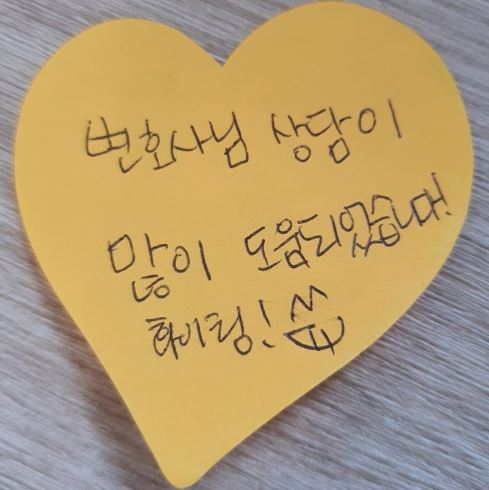 변호사님 상담이
많이 도움되었습니다!
화이팅!